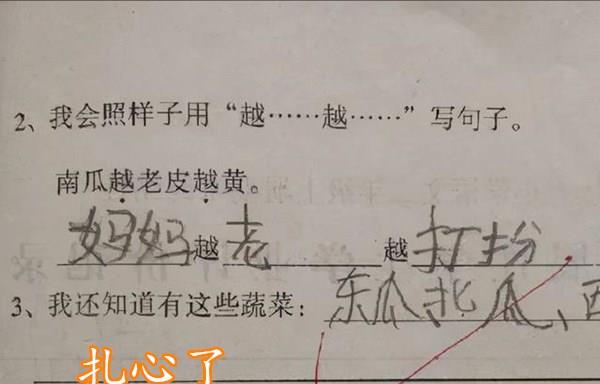 2、我会照样子用“越……越……”写句子。
南瓜越老皮越黄。
妈妈越老越打扮
3、我还知道有这些蔬菜：东瓜、北瓜、西
扎心了